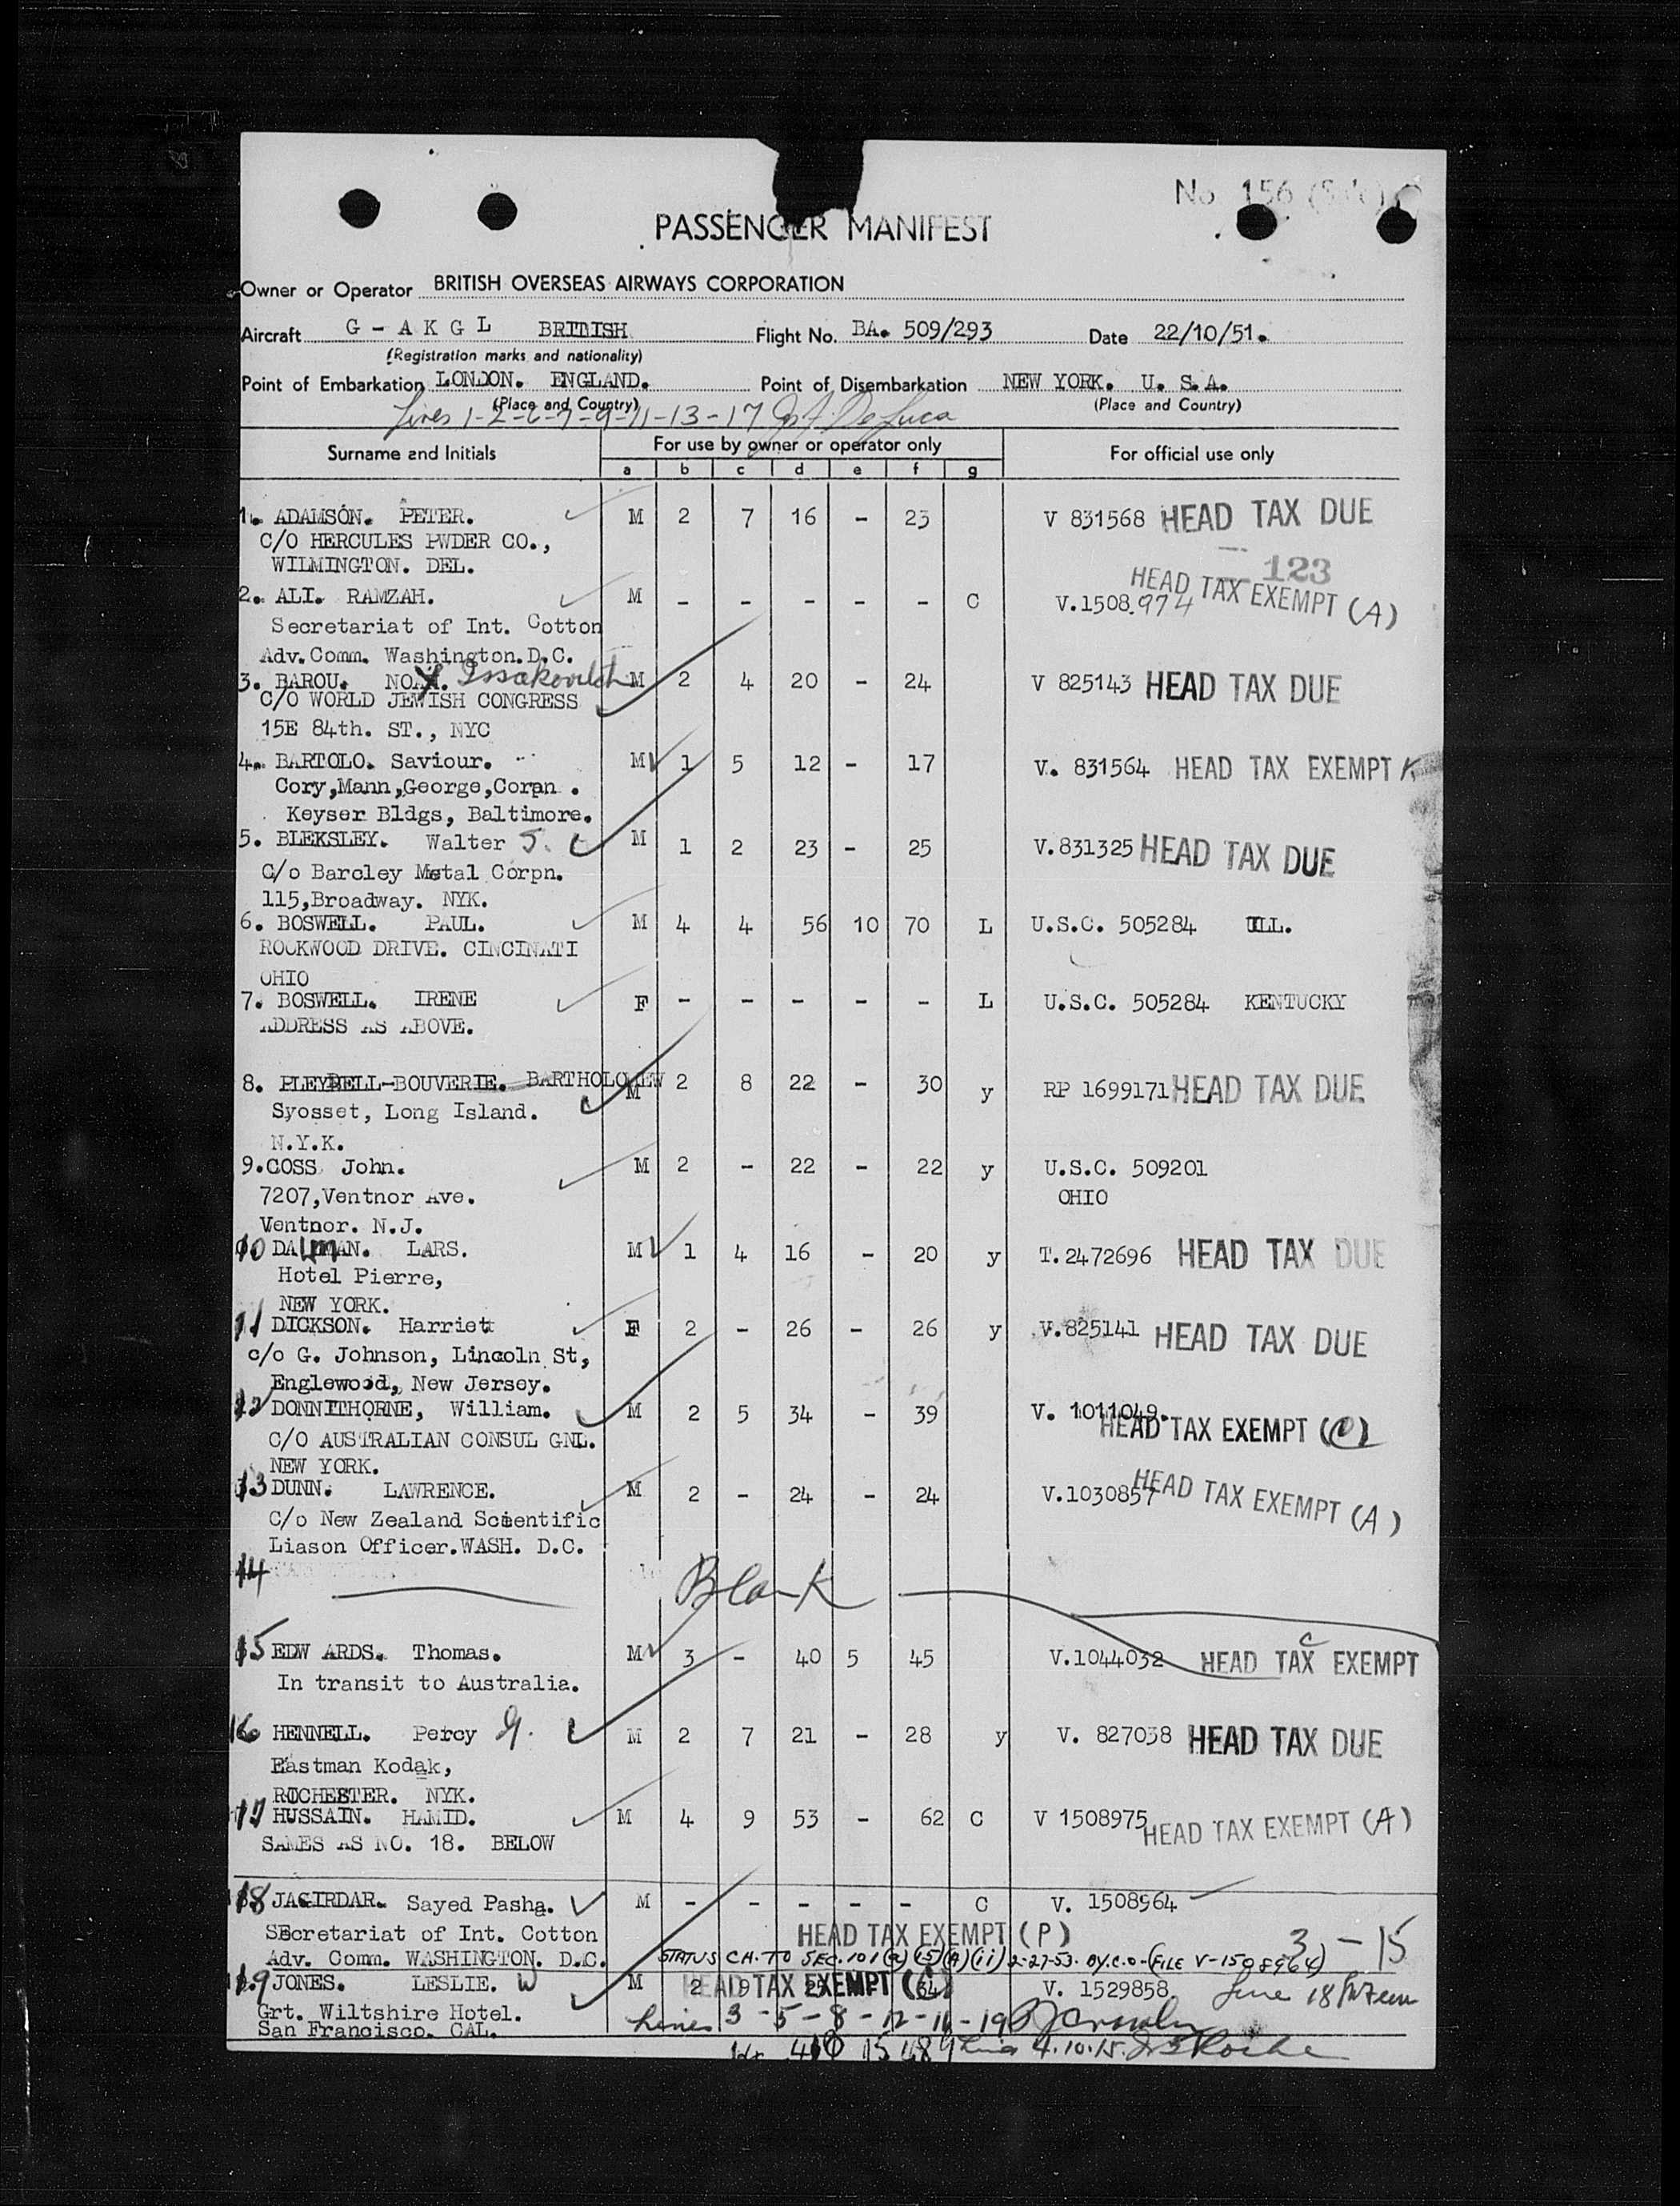 No 156
PASSENGER MANIFEST
Owner or Operator BRITISH OVERSEAS AIRWAYS CORPORATION
Aircraft G - A K G L BRITISH Flight No. BA. 509/293 Date 22/10/51.
(Registration marks and nationality)
Point of Embarkation LONDON. ENGLAND. Point of Disembarkation NEW YORK. U. S.A.
(Place and Country) (Place and Country)
Lines 1-2-6-7-9-11-13-17 DeLuca
Surname and Initials For use by owner or operator only For official use only
a b c d e f g
1. ADAMSON. PETER. M 2 7 16 - 23 V 831568 HEAD TAX DUE
C/O HERCULES PWDER CO.,
WILMINGTON. DEL. 123
2. ALI. RAMZAH. M - - - - - C V.1508.974 HEAD TAX EXEMPT (A)
Secretariat of Int. Cotton
Adv.Comm. Washington.D.C.
3. BAROU. NOAH. Issakovitch M 2 4 20 - 24 V 825143 HEAD TAX DUE
C/O WORLD JEWISH CONGRESS
15E 84th. ST., NYC
4. BARTOLO. Saviour. M 1 5 12 - 17 V. 831564 HEAD TAX EXEMPT
Cory,Mann,George,Corpn .
Keyser Bldgs, Baltimore.
5. BLEKSLEY. Walter J. M 1 2 23 - 25 V.831325 HEAD TAX DUE
C/o Barcley Metal Corpn.
115,Broadway. NYK.
6. BOSWELL. PAUL. M 4 4 56 10 70 L U.S.C. 505284 ILL.
ROOKWOOD DRIVE. CINCINATI
OHIO
7. BOSWELL. IRENE F - - - - - L U.S.C. 505284 KENTUCKY
ADDRESS AS ABOVE.
8. PLEYDELL-BOUVERIE. BARTHOLOMEW M 2 8 22 - 30 y RP 1699171 HEAD TAX DUE
Syosset, Long Island.
N.Y.K.
9.COSS John. M 2 - 22 - 22 y U.S.C. 509201
7207,Ventnor Ave. OHIO
Ventnor. N.J.
10 DALMAN. LARS. M 1 4 16 - 20 y T.2472696 HEAD TAX DUE
Hotel Pierre,
NEW YORK.
11 DICKSON. Harriet F 2 - 26 - 26 y V.825141 HEAD TAX DUE
c/o G. Johnson, Lincoln St,
Englewood, New Jersey.
12 DONNITHORNE, William. M 2 5 34 - 39 V. 1011049. HEAD TAX EXEMPT (C)
C/O AUSTRALIAN CONSUL GNL.
NEW YORK.
13 DUNN. LAWRENCE. M 2 - 24 - 24 V.1030857 HEAD TAX EXEMPT (A)
C/o New Zealand Scientific
Liason Officer.WASH. D.C.
14 Blank
15 EDW ARDS. Thomas. M 3 - 40 5 45 V.1044032 HEAD TAX EXEMPT C
In transit to Australia.
16 HENNELL. Percy G. M 2 7 21 - 28 y V. 827038 HEAD TAX DUE
Eastman Kodak,
ROCHESTER. NYK.
17 HUSSAIN. HAMID. M 4 9 53 - 62 C V 1508975 HEAD TAX EXEMPT (A)
SAMES AS NO. 18. BELOW
18 JAGIRDAR. Sayed Pasha. M - - - - - C V. 1508964
Secretariat of Int. Cotton HEAD TAX EXEMPT (P) 3 - 15
Adv. Comm. WASHINGTON. D.C. STATUS CH. TO SEC. 101(a)(15)(A)(ii) 2-27-53. BY.C.O-(FILE V-1508964)
19 JONES. LESLIE. W M 2 9 HEAD TAX EXEMPT (C) 64 V. 1529858. Line 18
Grt. Wiltshire Hotel.
San Francisco. CAL. Lines 3-5-8-12-16-19
4.10.15.